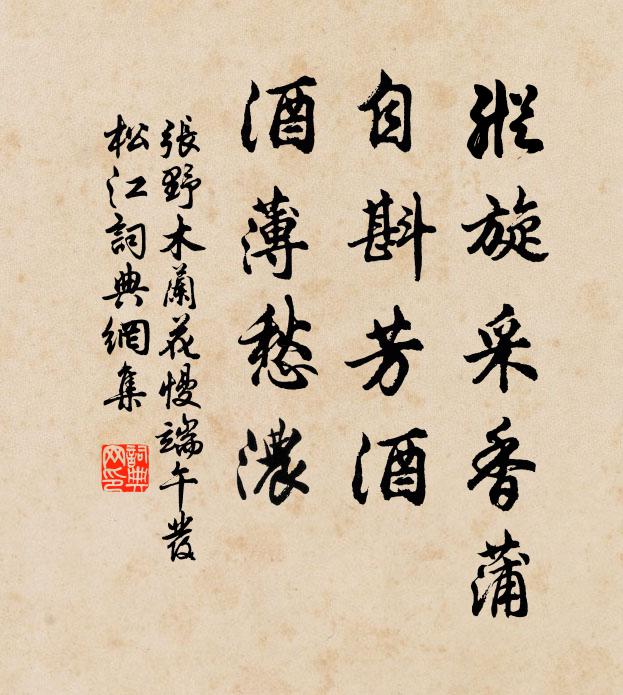 縱旋采香蒲
自斟芳酒
酒薄愁濃
張野木蘭花慢端午發
松江詞典網集
詞典网印